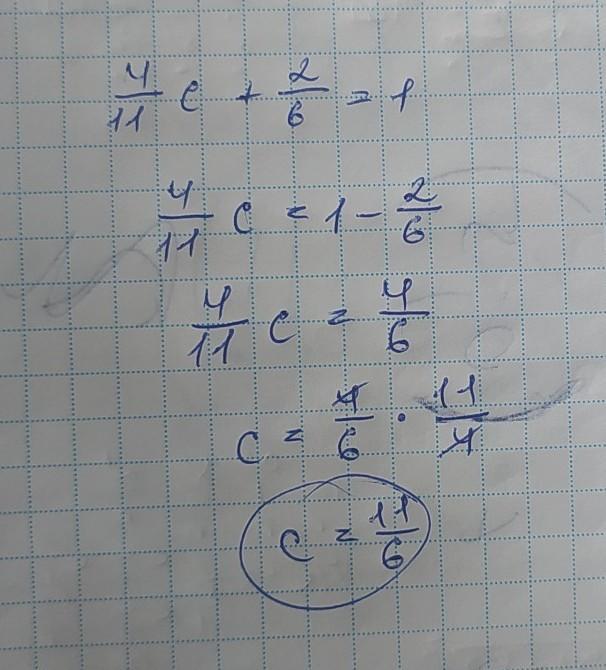 4/11 c + 2/6 = 1
4/11 c = 1 - 2/6
4/11 c = 4/6
c = 4/6 · 11/4
c = 11/6